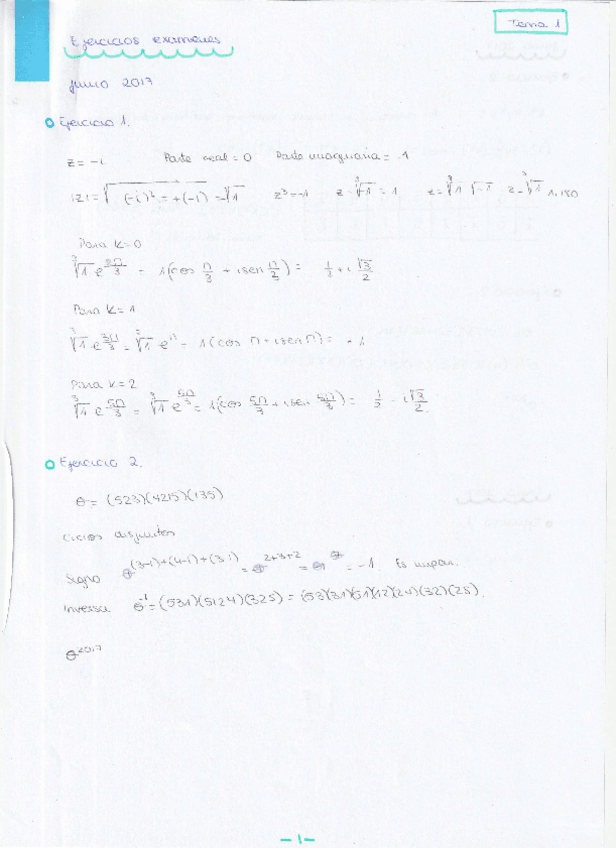 Tema 1
Ejercicios exámenes
junio 2017
Ejercicio 1.
z = -i Parte real = 0 Parte imaginaria = -1
|z| = √(-i)² = +(-i) = √1 z³ = -1 z = ∛-1 = 1 z = ∛1 √-1 z = ∛1 1,180
Para k=0
∛1 e^(3π/3) = 1(cos π/3 + i sen π/3) = 1/2 + i √3/2
Para k=1
∛1 e^(3π/3) = ∛1 e^π = 1(cos π + i sen π) = -1
Para k=2
∛1 e^(5π/3) = ∛1 e^(5π/3) = 1(cos 5π/3 + i sen 5π/3) = 1/2 - i √3/2
Ejercicio 2.
θ = (523)(4215)(135)
Ciclos disjuntos
Signo θ^((3-1)+(4-1)+(3-1)) = θ^(2+3+2) = θ1^7 = -1. Es impar.
Inversa θ⁻¹ = (531)(5124)(325) = (53)(31)(51)(12)(24)(32)(25).
θ^2017
-1-